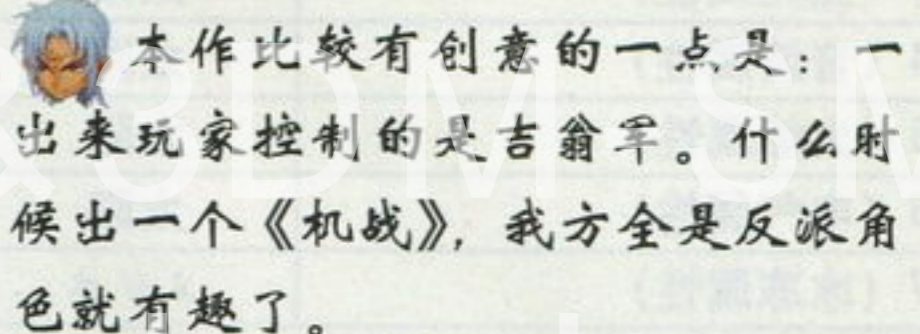 本作比较有创意的一点是：一
出来玩家控制的是吉翁军。什么时
候出一个《机战》，我方全是反派角
色就有趣了。